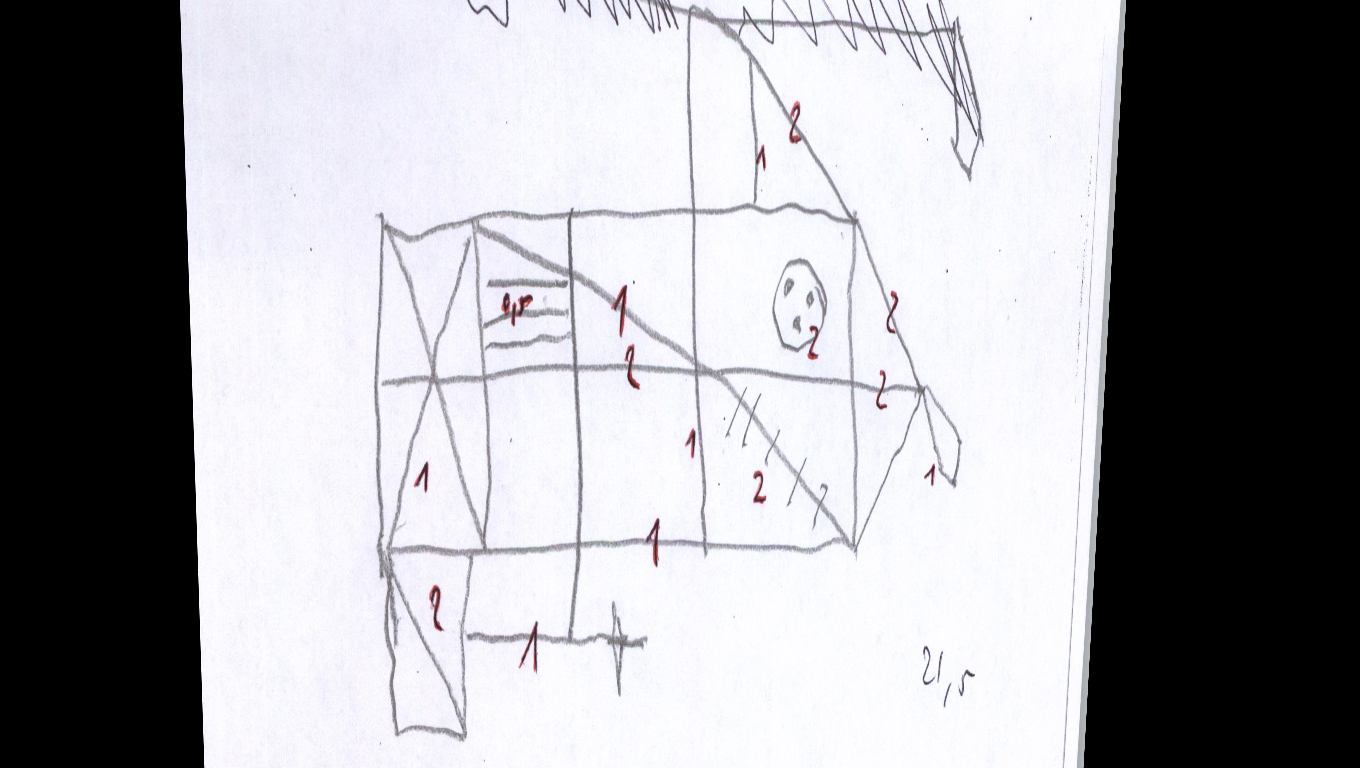 2
1
0,5
1
2
2
2
2
1
1
2
1
1
2
1
21,5